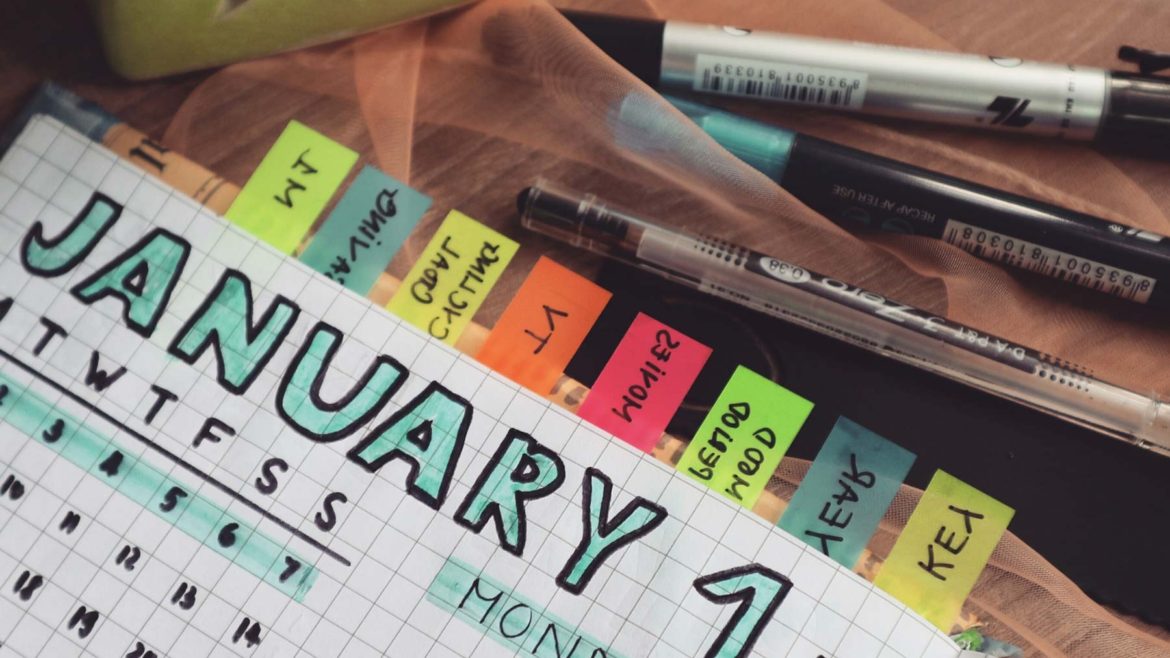 JANUARY 1
T W T F S S
2 3 4 5 6 7
10 11 12 13 14
18 19 20
MOND
SAVING
GOAL
MOVIES
PERIOD
MOOD
YEAR
KEY
8935001810339
RECAP AFTER USE
8935001810308
0.38
Zero